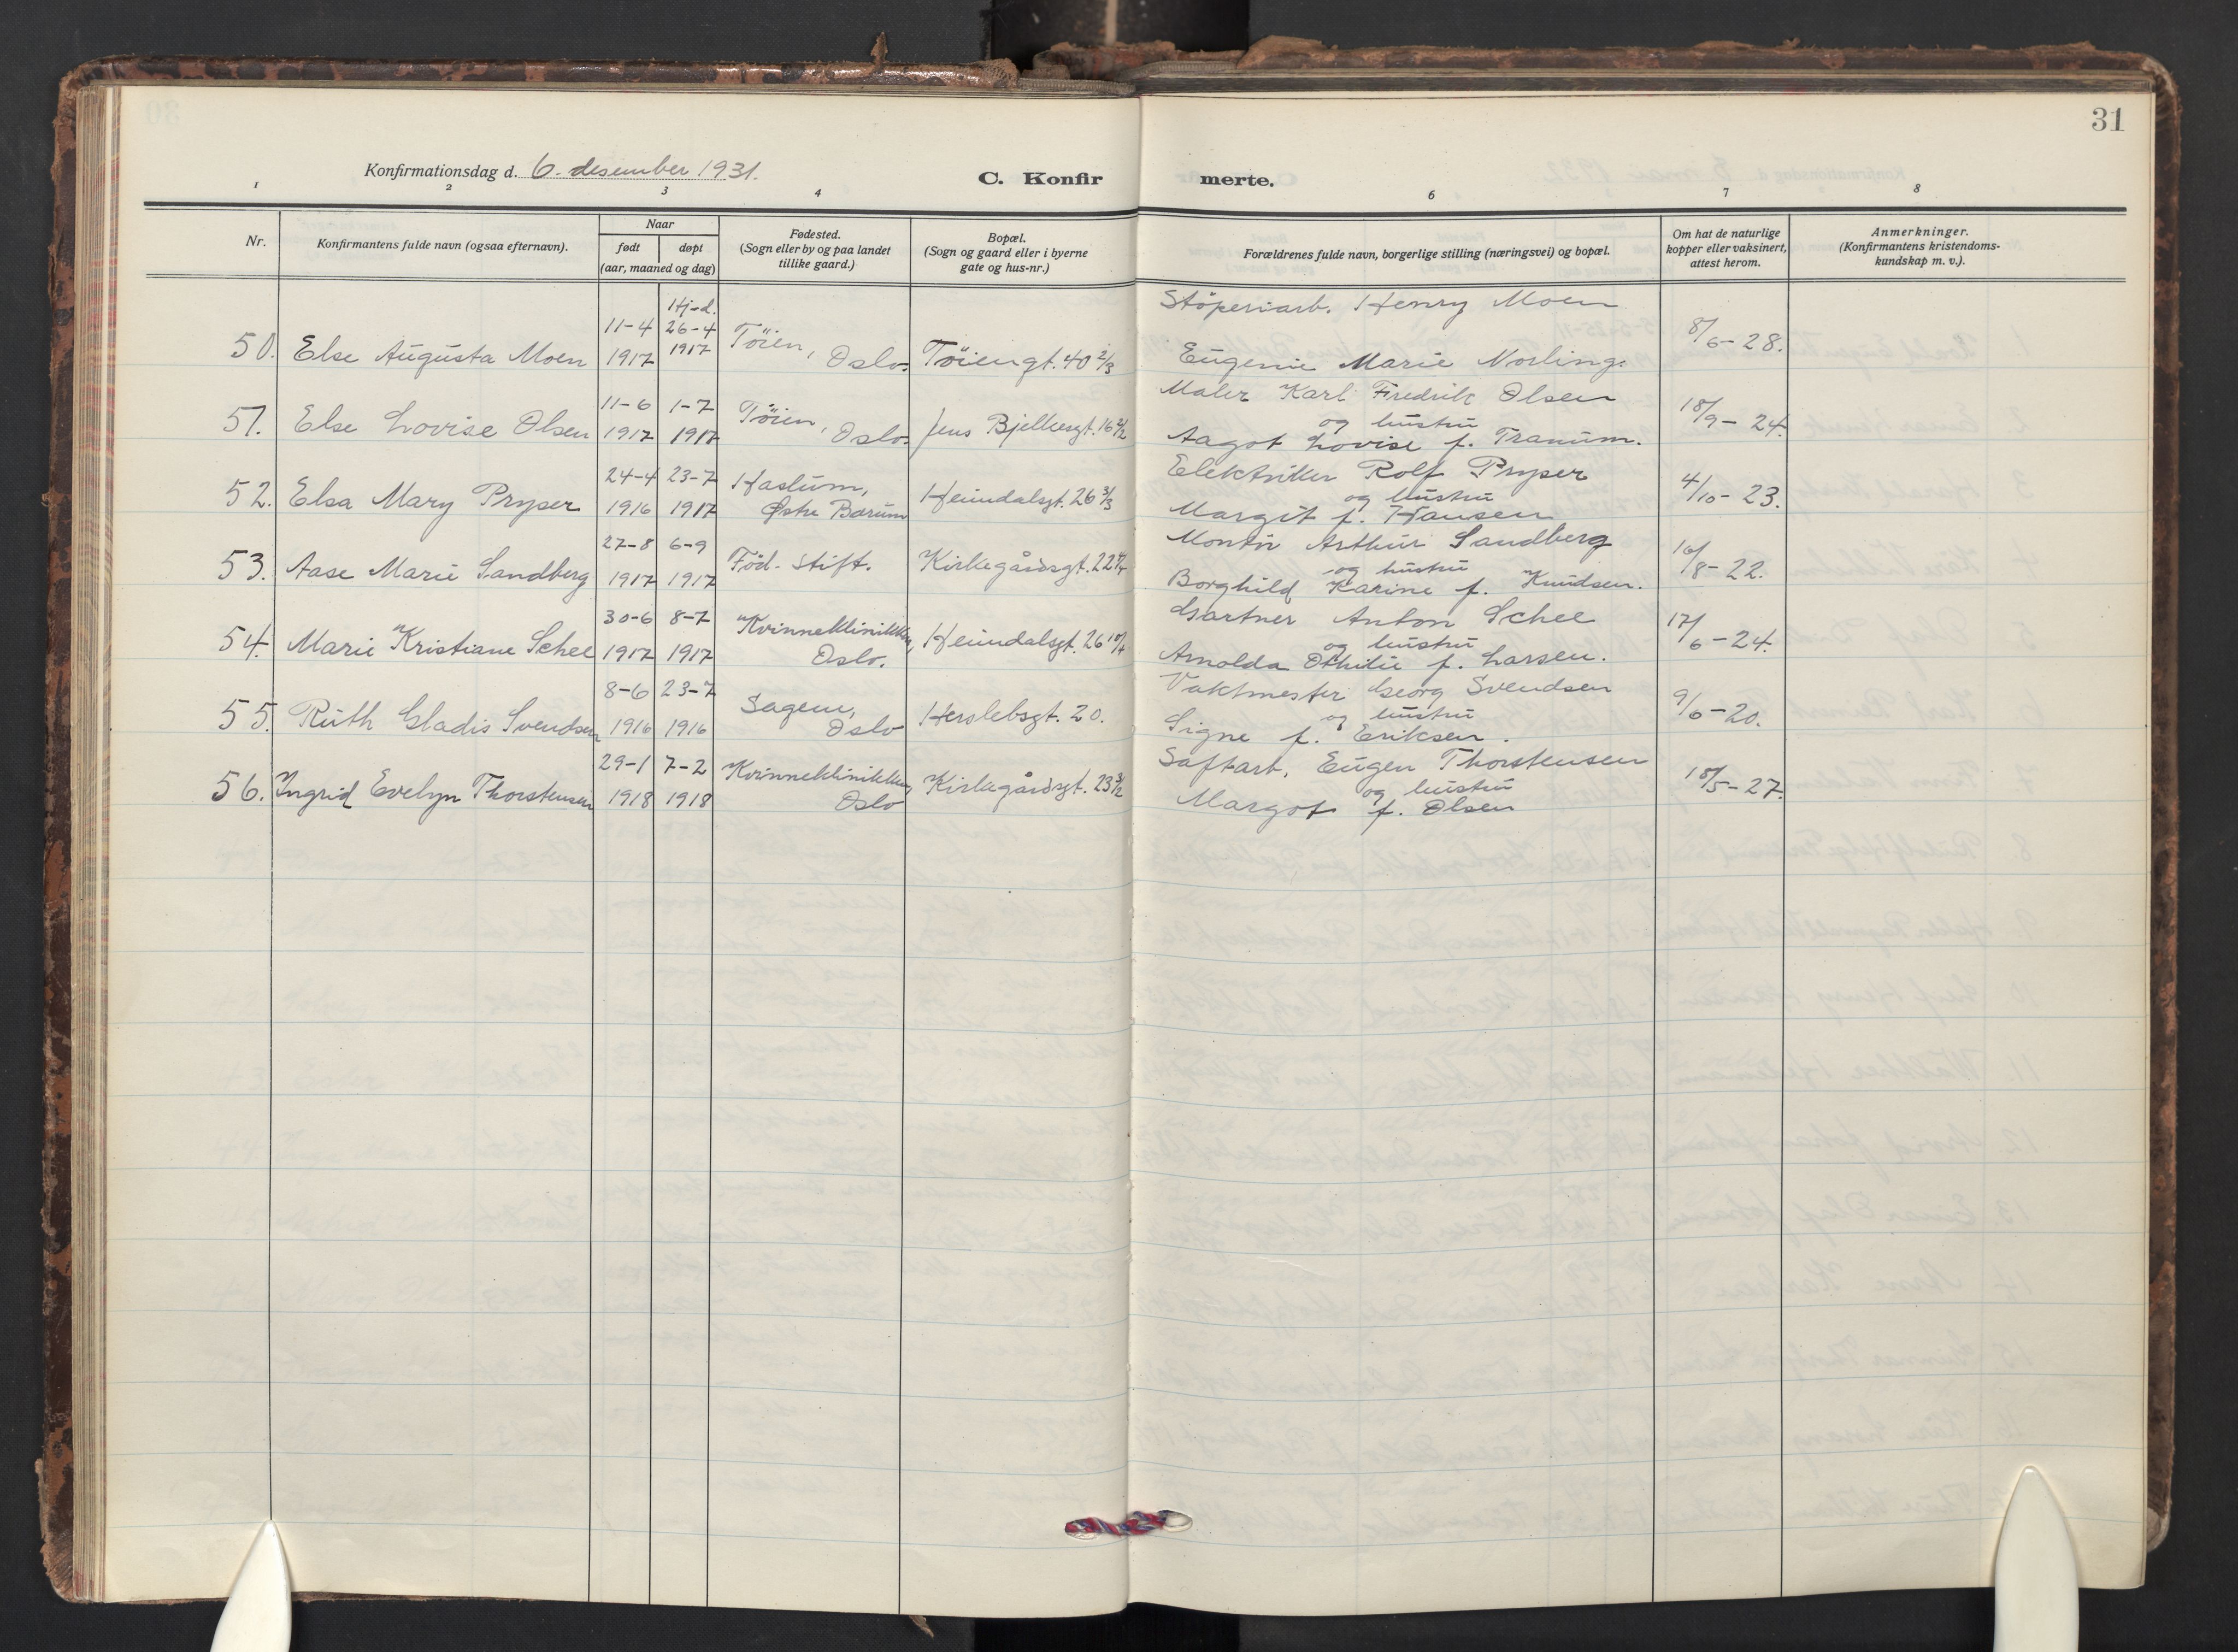 31
Konfirmationsdag d. 6. desember 1931.
C. Konfirmerte.
1 2 3 4 6 7 8
Nr.
Konfirmantens fulde navn (ogsaa efternavn).
Naar
født døpt
(aar, maaned og dag)
Fødested.
(Sogn eller by og paa landet
tillike gaard.)
Bopæl.
(Sogn og gaard eller i byerne
gate og hus-nr.)
Forældrenes fulde navn, borgerlige stilling (næringsvei) og bopæl.
Om hat de naturlige
kopper eller vaksinert,
attest herom.
Anmerkninger.
(Konfirmantens kristendoms-
kundskap m. v.).
Hj-d. Støperiarb. Henry Moen
11-4 26-4 Tøien, 8/6-28.
50. Else Augusta Moen 1917 1917 Oslo. Tøiengt. 40 2/3 Eugenie Marie Norling.
11-6 1-7 Tøien, Maler Karl Fredrik Olsen 18/9-24.
og hustru
51. Else Lovise Olsen 1917 1917 Oslo. Jens Bjelkesgt. 16 Aagot Lovise f. Tranum.
24-4 23-7 Haslum, Elektriker Rolf Pryser 4/10-23.
og hustru
52. Elsa Mary Pryser 1916 1917 Østre Bærum Heimdalsgt. 26 3/3 Margit f. Hansen
27-8 6-9 Montør Arthur Sandberg 16/8-22.
og hustru
53. Aase Marie Sandberg 1917 1917 Fød. stift. Kirkegårdsgt. 22 Borghild Karine f. Knudsen.
30-6 8-7 Kvinneklinikken, Gartner Anton Schee 17/6-24.
og hustru
54. Marie Kristiane Schee 1917 1917 Oslo. Heimdalsgt. 26 Arnolda Othilie f. Larsen.
8-6 23-7 Sagene, Vaktmester Georg Svendsen 9/6-20.
og hustru
55. Ruth Gladis Svendsen 1916 1916 Oslo Herslebsgt. 20. Signe f. Eriksen.
29-1 7-2 Kvinneklinikken, Saftarb. Eugen Thorstensen 18/5-27.
og hustru
56. Ingrid Evelyn Thorstensen 1918 1918 Oslo Kirkegårdsgt. 23 3/2 Margot f. Olsen